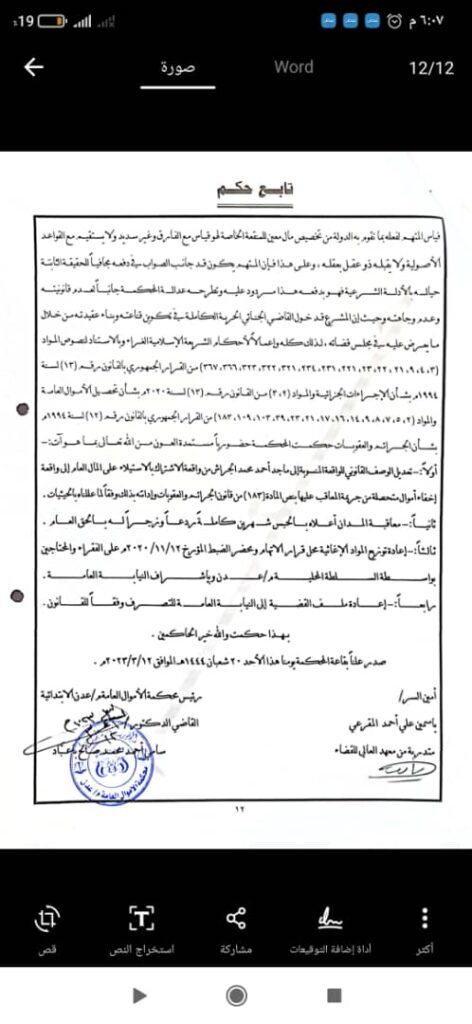 ٦:٠٧ م
19
صورة
Word
12/12
تابع حكم
قياس المتهم لفعله بما تقوم به الدولة من تخصيص مال معين للمنفعة الخاصة لهو قياس مع الفارق وغير سديد ولا يستقيم مع القواعد
الأصولية ولا يقبله ذو عقل بعقله، وعلى هذا فإن المتهم يكون قد جانب الصواب في دفعه مجافياً للحقيقة الثابتة
حياله بالأدلة الشرعية فهو بدفعه هذا مردود عليه وتطرحه عدالة المحكمة جانباً لعدم قانونيته
وعدم وجاهته وحيث إن المشرع قد خول القاضي الجنائي الحرية الكاملة في تكوين قناعته وبناء عقيدته من خلال
ما يعرض عليه في مجلس قضائه، لذلك كله وإعمالاً لأحكام الشريعة الإسلامية الغراء وبالاستناد لنصوص المواد
لسنة
١٩٩٤م بشأن الإجراءات الجزائية والمواد (٣،٢) من القانون رقم (١٣) لسنة ٢٠٢٠م بشأن تحصيل الأموال العامة
من القرار الجمهوري بالقانون رقم (١٢) لسنة ١٩٩٤م
بشأن الجرائم والعقوبات حكمت المحكمة حضورياً مستمدة العون من الله تعالى بما هو آت:-
أولاً:- تعديل الوصف القانوني للواقعة المنسوبة إلى ماجد أحمد محمد الجراش من واقعة الاشتراك بالاستيلاء على المال العام إلى واقعة
إخفاء أموال متحصلة من جريمة المعاقب عليها بنص المادة (١٨٣) من قانون الجرائم والعقوبات وإدانته بذلك وفقاً لما عللناه بالحيثيات.
ثانياً:- معاقبة المدان أعلاه بالحبس شهرين كاملة ردعاً وزجراً له بالحق العام.
ثالثاً:- إعادة توزيع المواد الإغاثية محل قرار الاتهام ومحضر الضبط المؤرخ ٢٠٢٠/١١/١٢م على الفقراء والمحتاجين
بواسطة السلطة المحلية م/عدن وبإشراف النيابة العامة.
رابعاً:- إعادة ملف القضية إلى النيابة العامة للتصرف وفقاً للقانون.
بهذا حكمت والله خير الحاكمين.
صدر علناً بقاعة المحكمة يومنا هذا الأحد ٢٠ شعبان ١٤٤٤هـ الموافق ٢٠٢٣/٣/١٢م.
أمين السر/
رئيس محكمة الأموال العامة م/عدن الابتدائية
ياسمين علي أحمد المقرعي
القاضي الدكتور/
متدربة من معهد العالي للقضاء
أحمد محمد صالح باعباد
١٢
قص
استخراج النص
مشاركة
أداة إضافة التوقيعات
أكثر